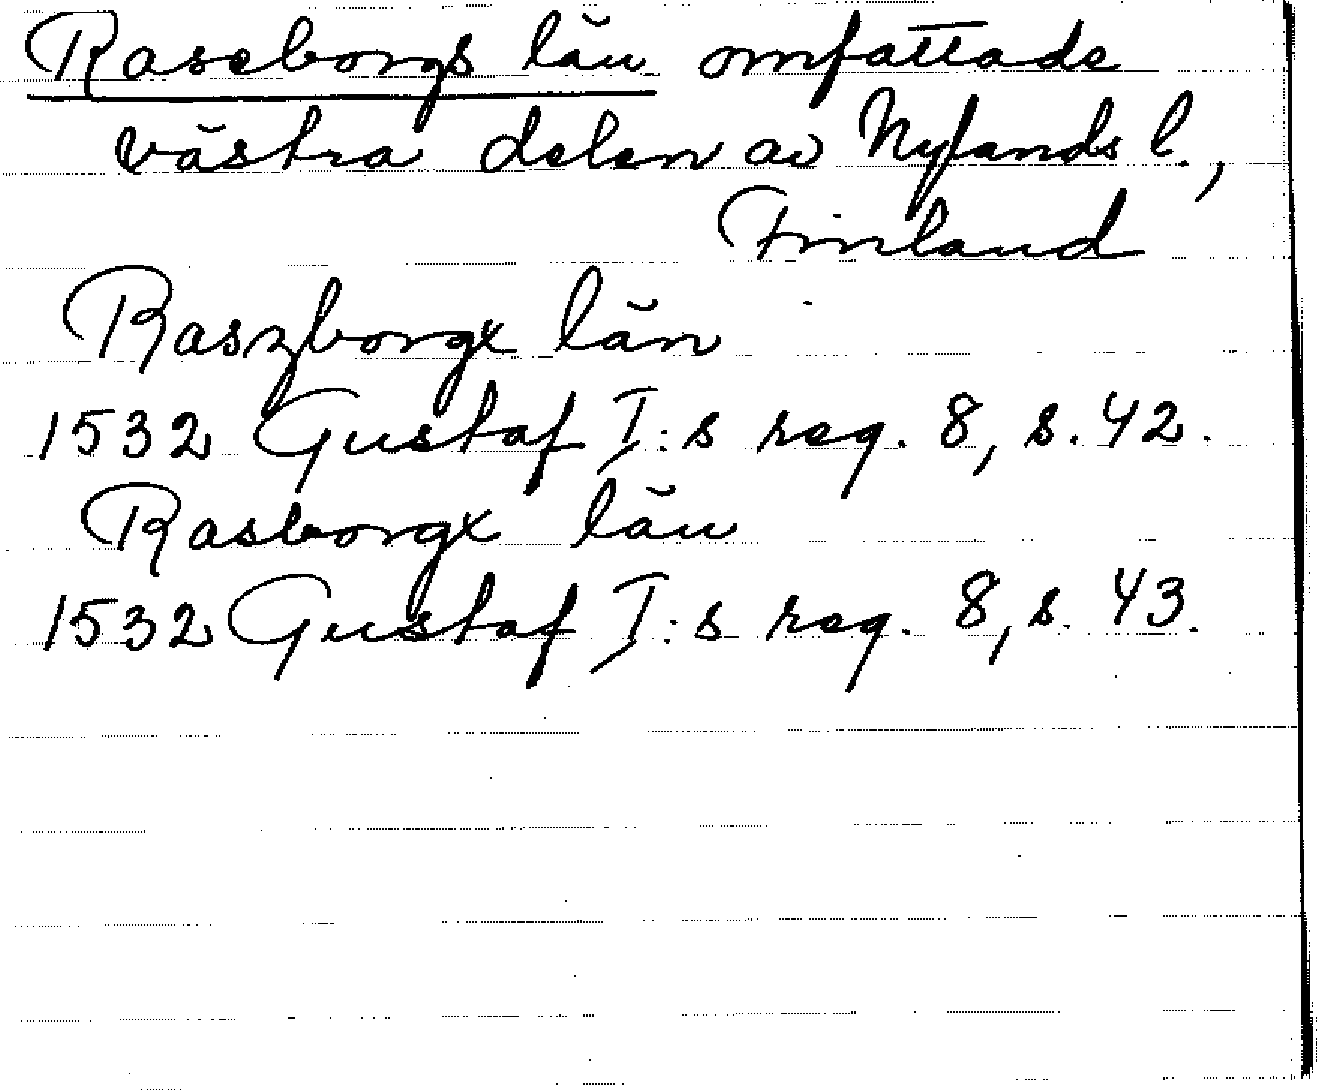 Raseborgs län omfattade
västra delen av Nylands l.,
Finland
Raszborgx län
1532 Gustaf I:s reg. 8, s. 42.
Rasborgx län
1532 Gustaf I:s reg. 8, s. 43.